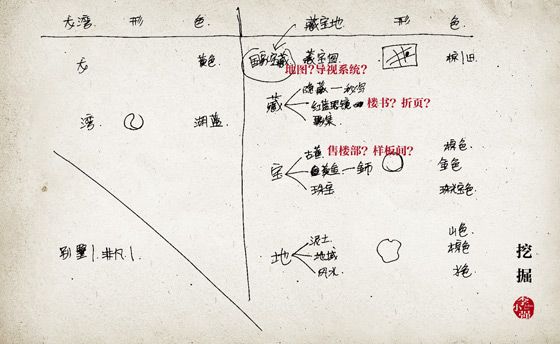 友湾 形 色 藏宝地 形 色
友 黄色 国家宝藏 藏宝图 棕/旧
地图?导视系统?
藏 隐藏一秘密
红蓝眼镜 楼书?折页?
湾 湖蓝
售楼部?样板间?
宝 古董 橙色
黄金 金色
珠宝 珠宝色
地 泥土 山色
别墅 非凡 地域 橙色
风水 水色
挖掘